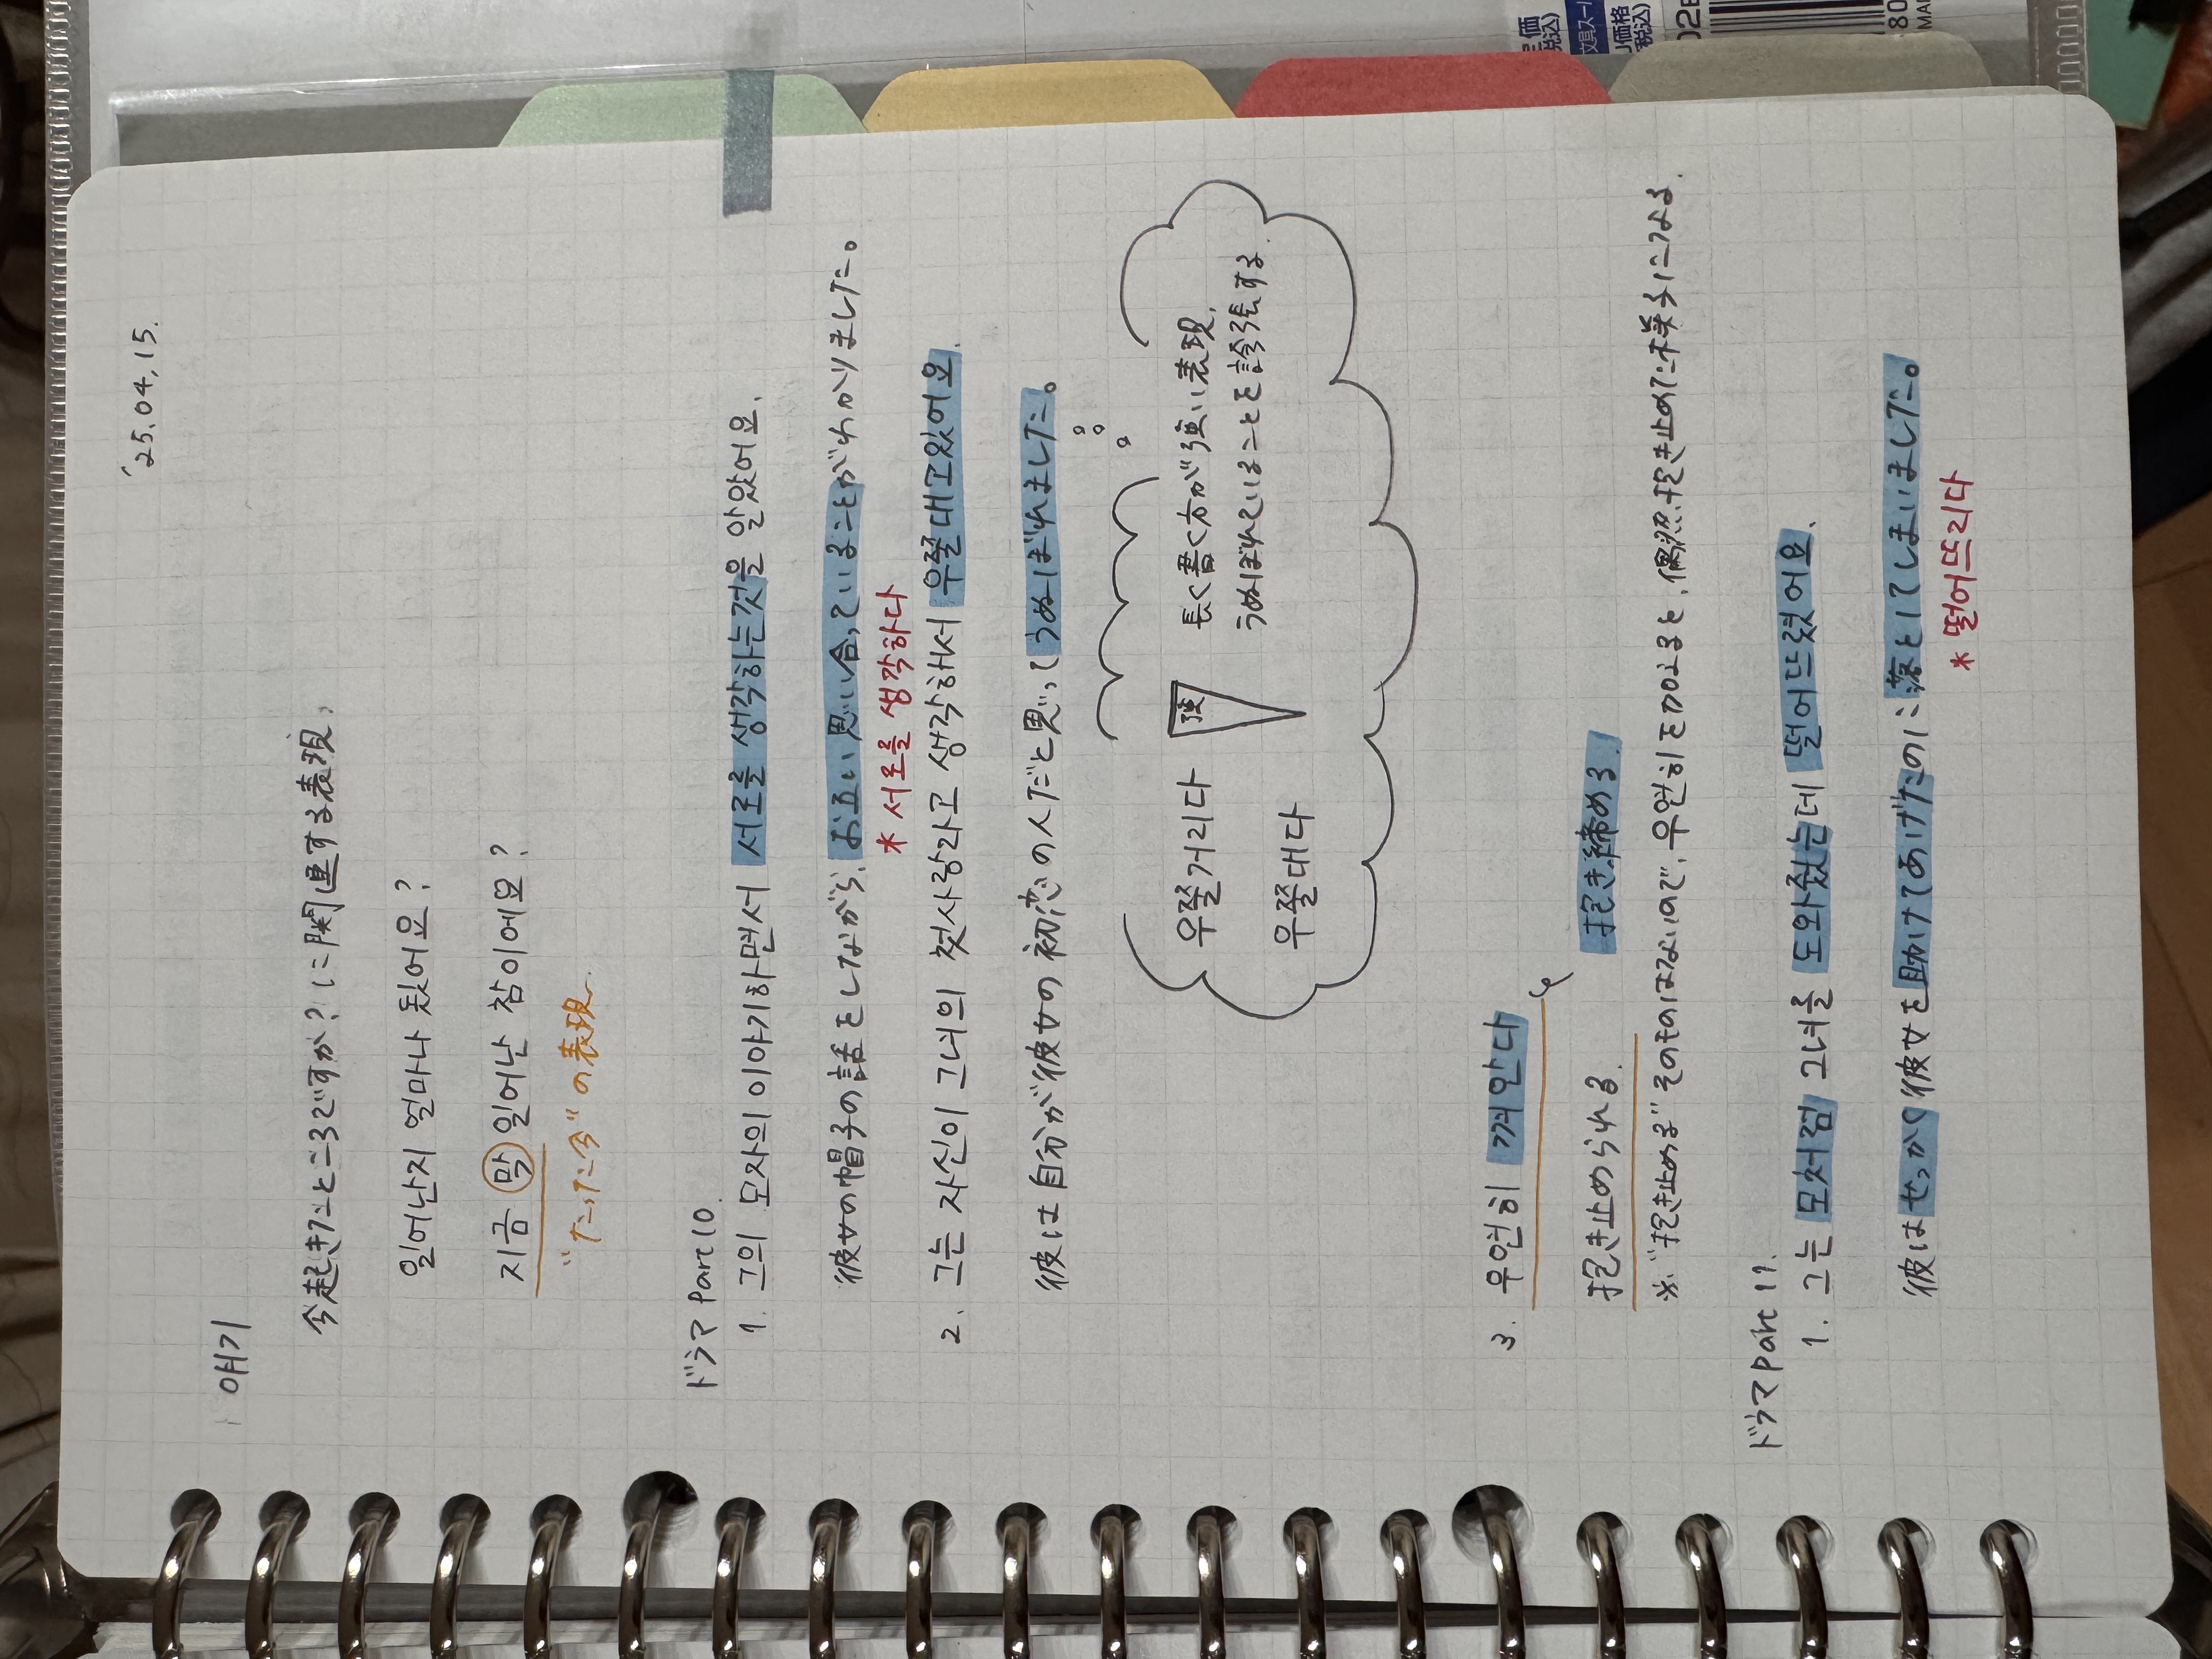 '25.04.15.
얘기
今起きたところですか?に関連する表現,
일어난지 얼마나 됬어요?
지금 막 일어난 참이에요?
"たった今"の表現
ドラマ Part 10.
1. 그의 모자의 이야기하면서 서로를 생각하는것을 알았어요.
彼女の帽子の話をしながら、お互い思い合っていることがわかりました。
* 서로를 생각하다
2. 그는 자신이 그녀의 첫사랑라고 생각해서 우쭐대고있어요.
彼は自分が彼女の初恋の人だと思ってうぬぼれました。
우쭐거리다 強 長く書く方が強い表現,
우쭐대다 うぬぼれていることを誇張する.
3. 우연히 껴안다
抱き止められる. 抱き締める.
※"抱き止める"そのものはないので、우연히をかけると、偶然抱き止めた様子になる.
ドラマ Part 11.
1. 그는 모처럼 그녀를 도와줬는데 떨어뜨렸어요.
彼はせっかく彼女を助けてあげたのに落としてしまいました。
* 떨어뜨리다
定価
税込)
文具スー
価格
税込)
02E
80
MA